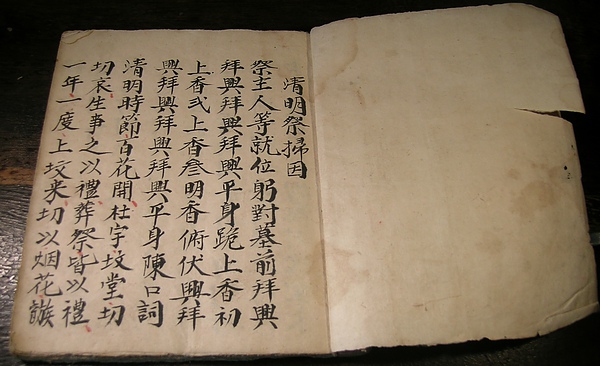 清明祭掃因
祭主人等就位躬對墓前拜興
拜興拜興拜興平身跪上香初
上香弍上香叁明香俯伏興拜
興拜興拜興拜興平身陳口詞
清明時節百花開杜宇墳堂切
切哀生事之以禮葬祭皆以禮
一年一度上坟来切以烟花簇